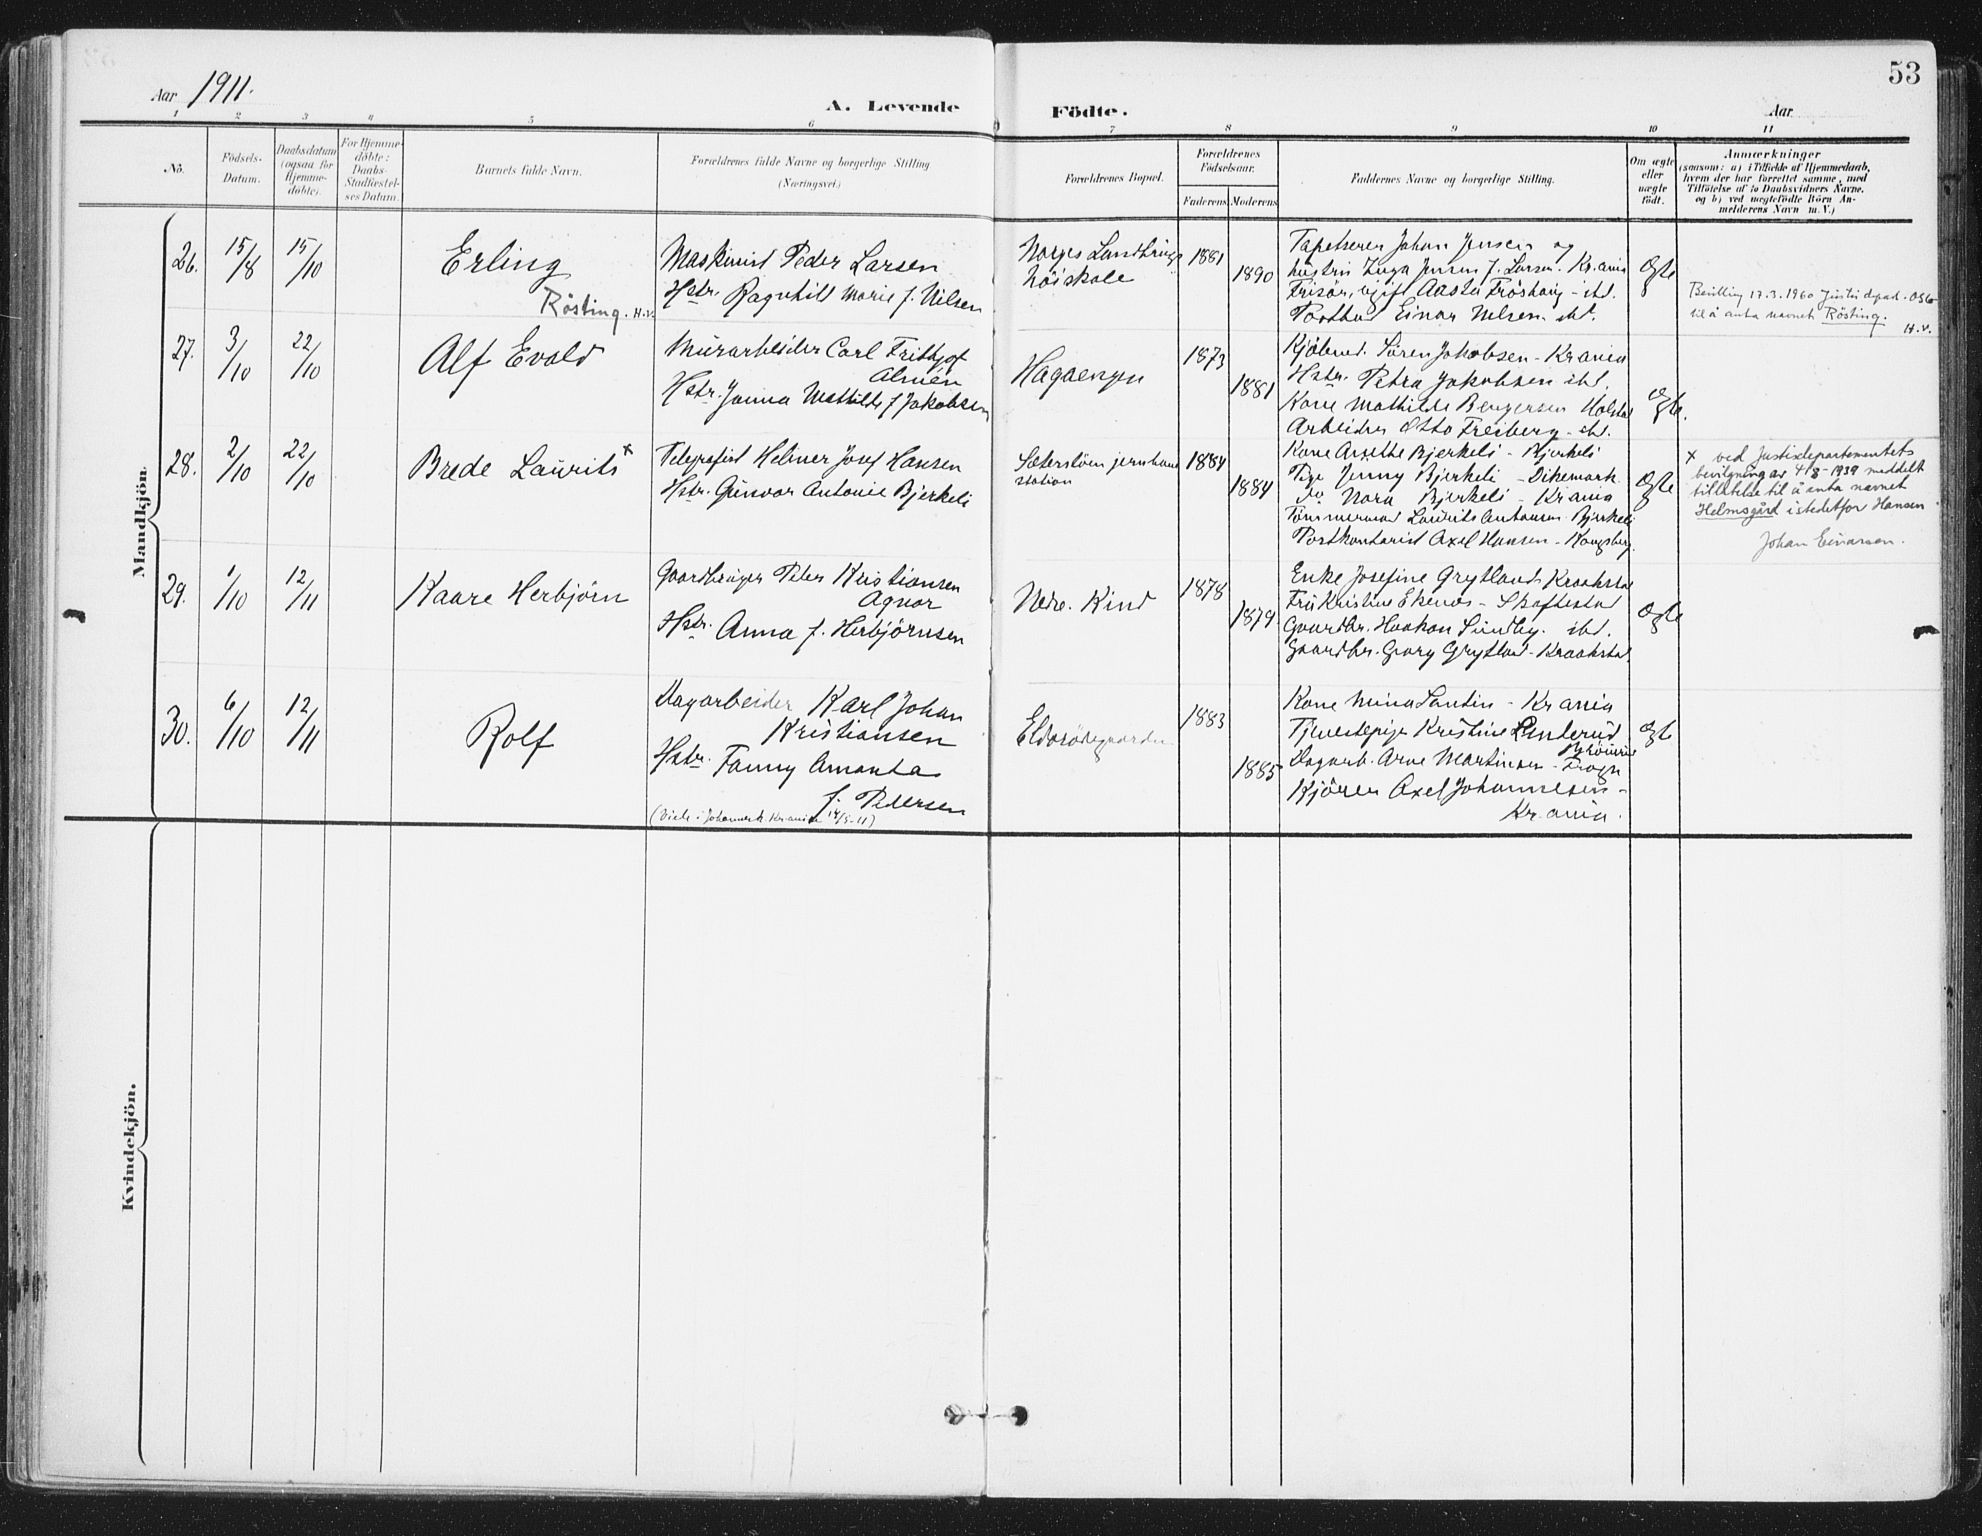 53
Aar 1911.
A. Levende Födte.
Aar
1 2 3 4 5 6 7 8 9 10 11
No.
Födsels-
Datum.
Daabsdatum
(ogsaa for
Hjemme-
döbte).
For Hjemme-
döbte:
Daabs-
Stadfæstel-
ses Datum.
Barnets fulde Navn.
Forældrenes fulde Navne og borgerlige Stilling
(Næringsvei.)
Forældrenes Bopæl.
Forældrenes
Födselsaar.
Faderens Moderens
Faddernes Navne og borgerlige Stilling.
Om ægte
eller
uægte
födt.
Anmærkninger
(saasom: a) i Tilfælde af Hjemmedaab,
hvem der har forrettet samme, med
Tilföielse af to Daabsvidners Navne,
og b) ved uægtefödte Börn An-
melderens Navn m. V.)
Mandkjön.
26.
15/8
15/10
Erling
Rösting. H.V.
Maskinist Peder Larsen
Hstr. Ragnhild Marie f. Nilsen
Norges Landbrugs
höiskole
1881
1890
Tapetserer Johan Jensen og
hustru Inga Jensen f. Larsen. Kr.ania
Frisör, ugift Aasta Fröshaug - ibd.
Postbud Einar Nilsen ibd.
Ægte
Bevilling 17.3.1960 Justisdepad. Oslo
til å anta navnet Rösting.
H.V.
27.
3/10
22/10
Alf Evald
Murarbeider Carl Frithjof
Almén
Hstr. Janna Mathilde f Jakobsen
Hagaengen
1873
1881
Kjöbmd. Sören Jakobsen - Kr.ania
Hstr. Petra Jakobsen ibd.
Kone Mathilde Bengersen Holstad
Arbeider Otto Freiberg - ibd.
Ægte.
28.
2/10
22/10
Brede Laurits x
Telegrafist Helmer Josef Hansen
Hstr. Gunvor Antonie Bjerkeli
Sæterstöen jernbane
station
1884
1884
Kone Anette Bjerkeli - Bjerkeli
Pige Jenny Bjerkeli - Dikemark
do Nora Bjerkeli - Kr.ania
Tömmermand Laurits Antonsen Bjerkeli
Postkontorist Axel Hansen - Kongsberg.
Ægte
x ved Justisdepartementets
bevilgning av 4/8-1939 meddelt
tillatelse til å anta navnet
Helmsgård istedetfor Hansen
Johan Einarsen.
29.
1/10
12/11
Kaare Herbjörn
Gaardbruger Peter Kristiansen
Agnor
Hstr. Anna f. Herbjörnsen
Nedre. Kind
1878
1879.
Enke Josefine Grytland Kraakstad
Fru Kristine Ekenes - Skaftestad
Gaardbr. Haakon Sundby. ibd.
Gaardbr. Georg Grytland - Kraakstad.
Ægte
30.
6/10
12/11
Rolf
Dagarbeider Karl Johan
Kristiansen
Hstr. Fanny Amanta
f. Pedersen
(Viede i Johannesk. Kr.ania 14/5-11)
Eldorödegaarden
1883
1885
Kone Mina Santin - Kr.ania
Tjenestepige Kristine Linderud
Dagarb. Arne Martinsen - Frogn
Kjörer Axel Johannesen -
Kr.ania.
Ægte
Kvindekjön.